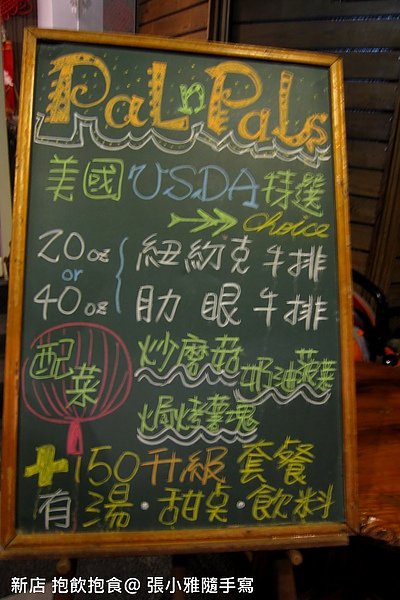 Pal n Pals
美國USDA特選
choice
20oz or 40oz
紐約克牛排
肋眼牛排
配菜
炒磨菇
奶油蔬菜
焗烤薯塊
+150升級套餐
有湯·甜桌·飲料
新店 抱飲抱食@ 張小雅隨手寫